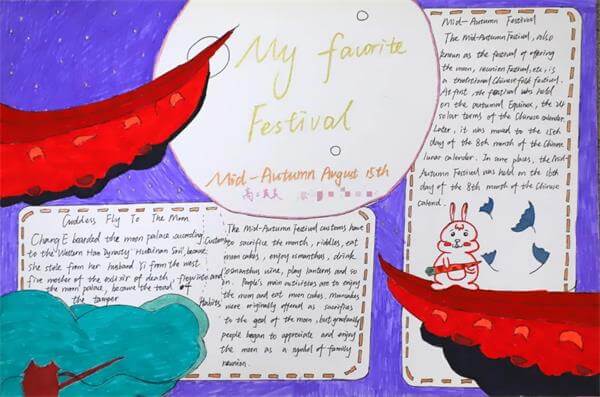 My favorite
Festival
Mid-Autumn August 15th
Mid-Autumn Festival
The Mid-Autumn Festival, also
known as the festival of offering
the moon, reunion Festival, etc, is
a traditional Chinese folk festival.
At first, the festival was held
on the autumnal Equinox, the 24
solar terms of the Chinese calender.
Later, it was moved to the 15th
day of the 8th month of the Chinese
lunar calender. In some places, the Mid-
Autumn Festival was held on the 16th
day of the 8th month of the Chinese
calend.
Goddess Fly To The Moon
Chang E boarded the moon palace according
to the Western Han Dynasty Huainan Son, because
she stole from her husband Yi from the west
five mother of the elixir of death, figurine and
the moon palace, became the toad of
the tamper
Customs
Rabbits
The Mid-Autumn Festival customs have
to sacrifice the month, riddles, eat
mooncakes, enjoy osmanthus, drink
osmanthus wine, play lanterns and so
on. People's main activities are to enjoy
the moon and eat moon cakes. Mooncakes
were originally offered as sacrifices
to the god of the moon, but gradually
people began to appreciate and enjoy
the moon as a symbol of family
reunion.